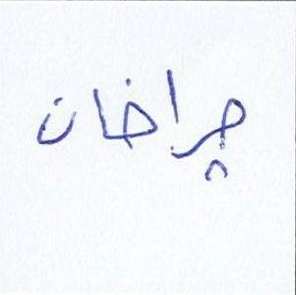 چراخان